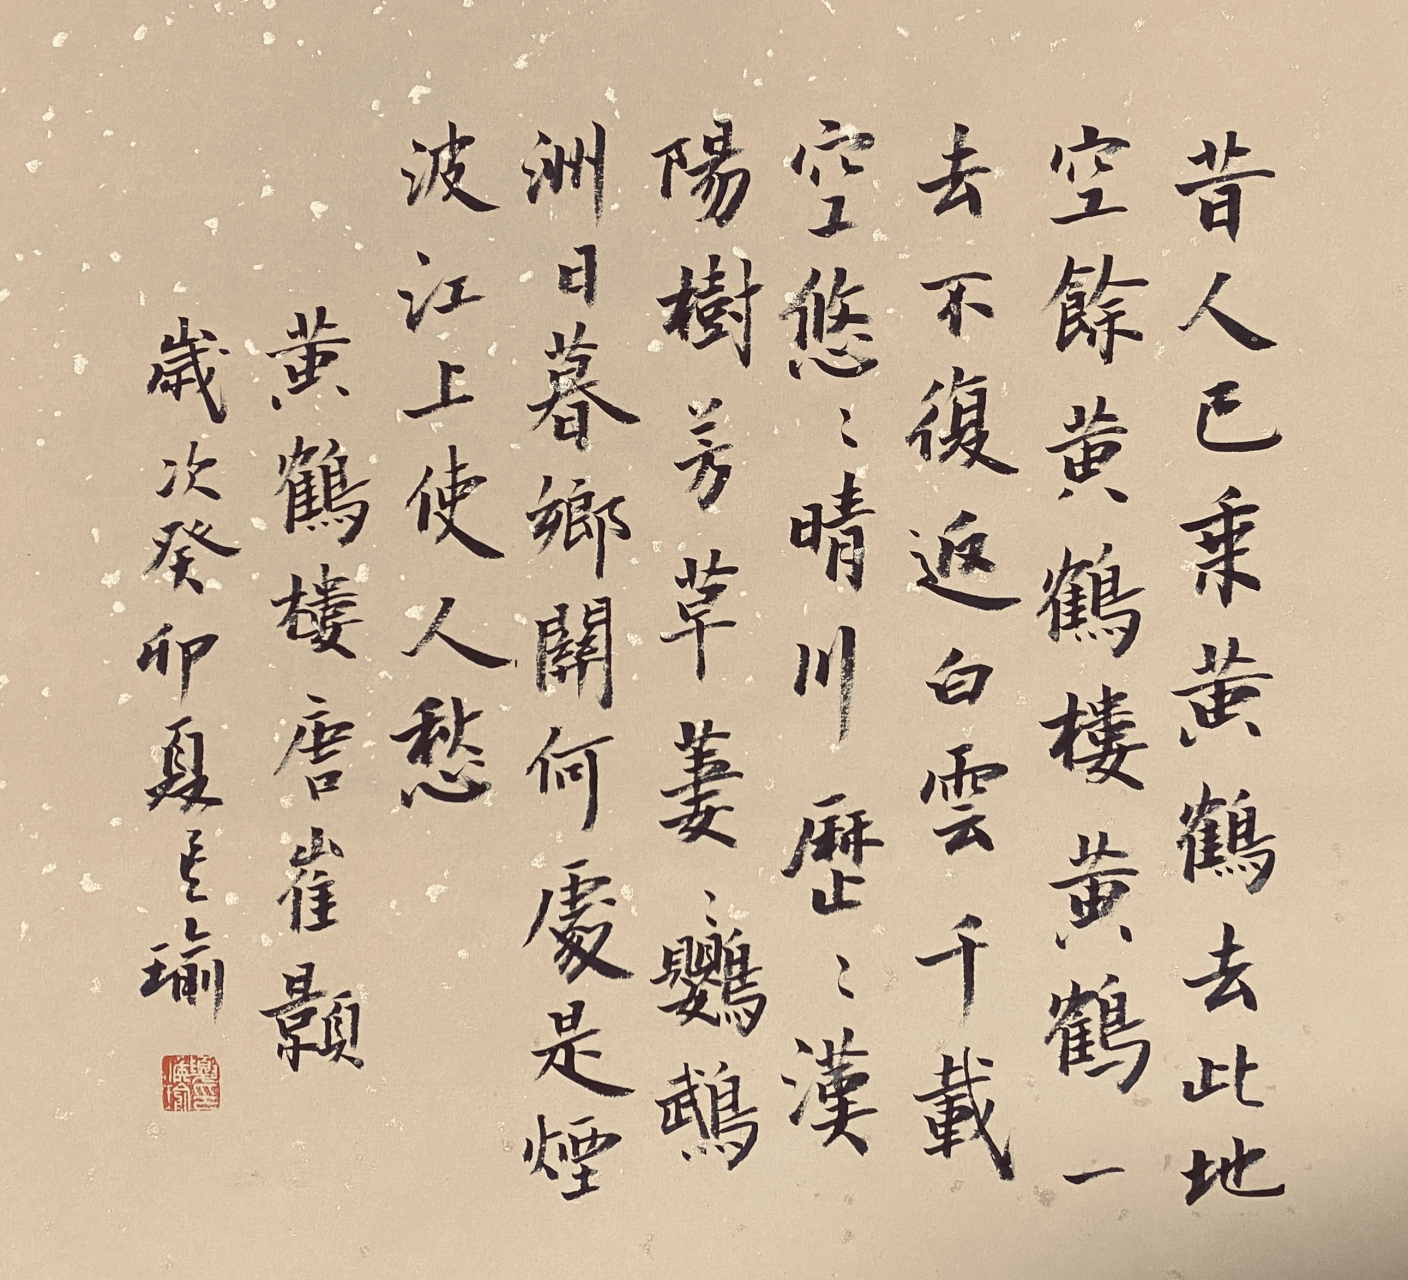 昔人已乘黄鶴去此地
空餘黄鶴樓黄鶴一
去不復返白雲千載
空悠〻晴川歷〻漢
陽樹芳草萋〻鸚鵡
洲日暮鄉關何處是煙
波江上使人愁
黄鶴樓唐崔顥
歲次癸卯夏瑜